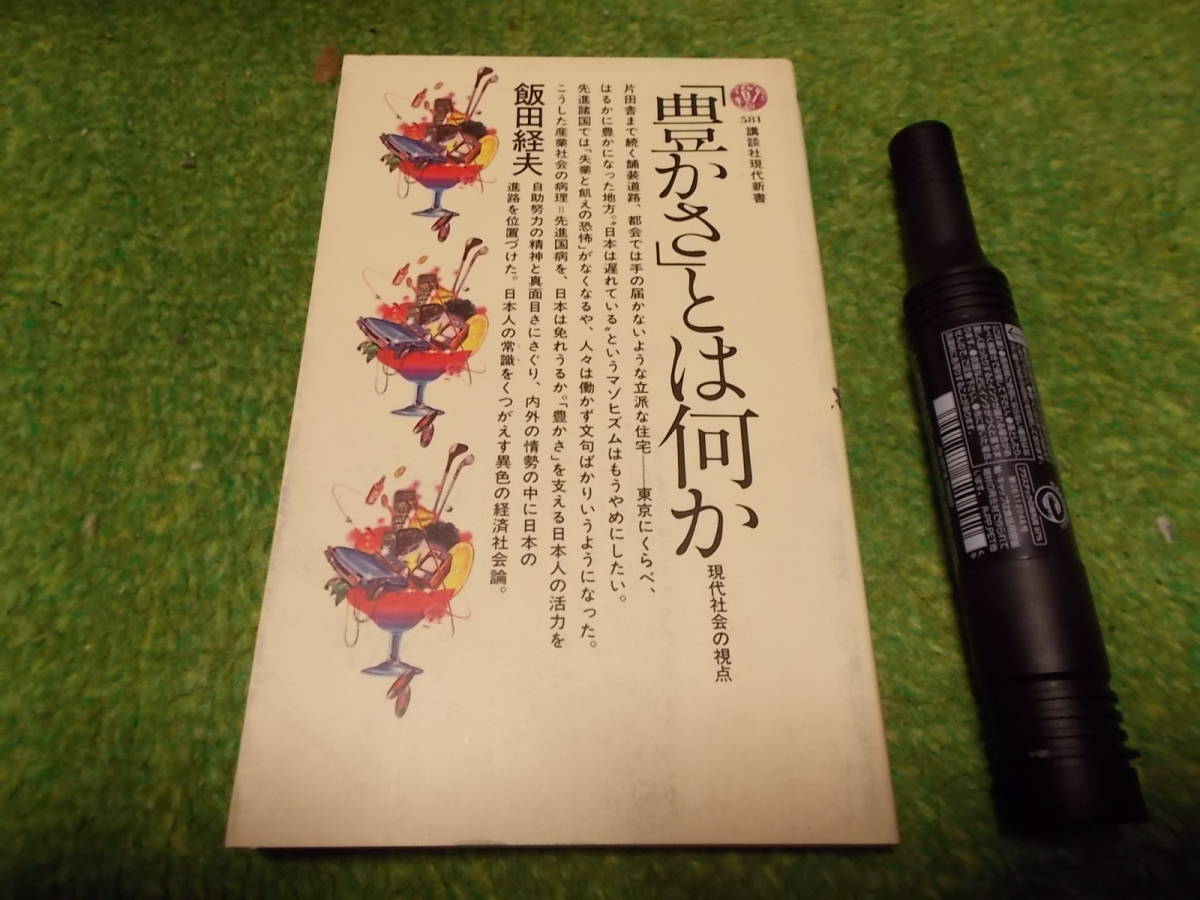 581
講談社現代新書
「豊かさ」とは何か
現代社会の視点
片田舎まで続く舗装道路、都会では手の届かないような立派な住宅――東京にくらべ、
はるかに豊かになった地方。“日本は遅れている”というマゾヒズムはもうやめにしたい。
先進諸国では「失業と飢えの恐怖」がなくなるや、人々は働かず文句ばかりいうようになった。
こうした産業社会の病理＝先進国病を、日本は免れうるか。「豊かさ」を支える日本人の活力を
自助努力の精神と真面目さにさぐり、内外の情勢の中に日本の
進路を位置づけた。日本人の常識をくつがえす異色の経済社会論。
飯田経夫